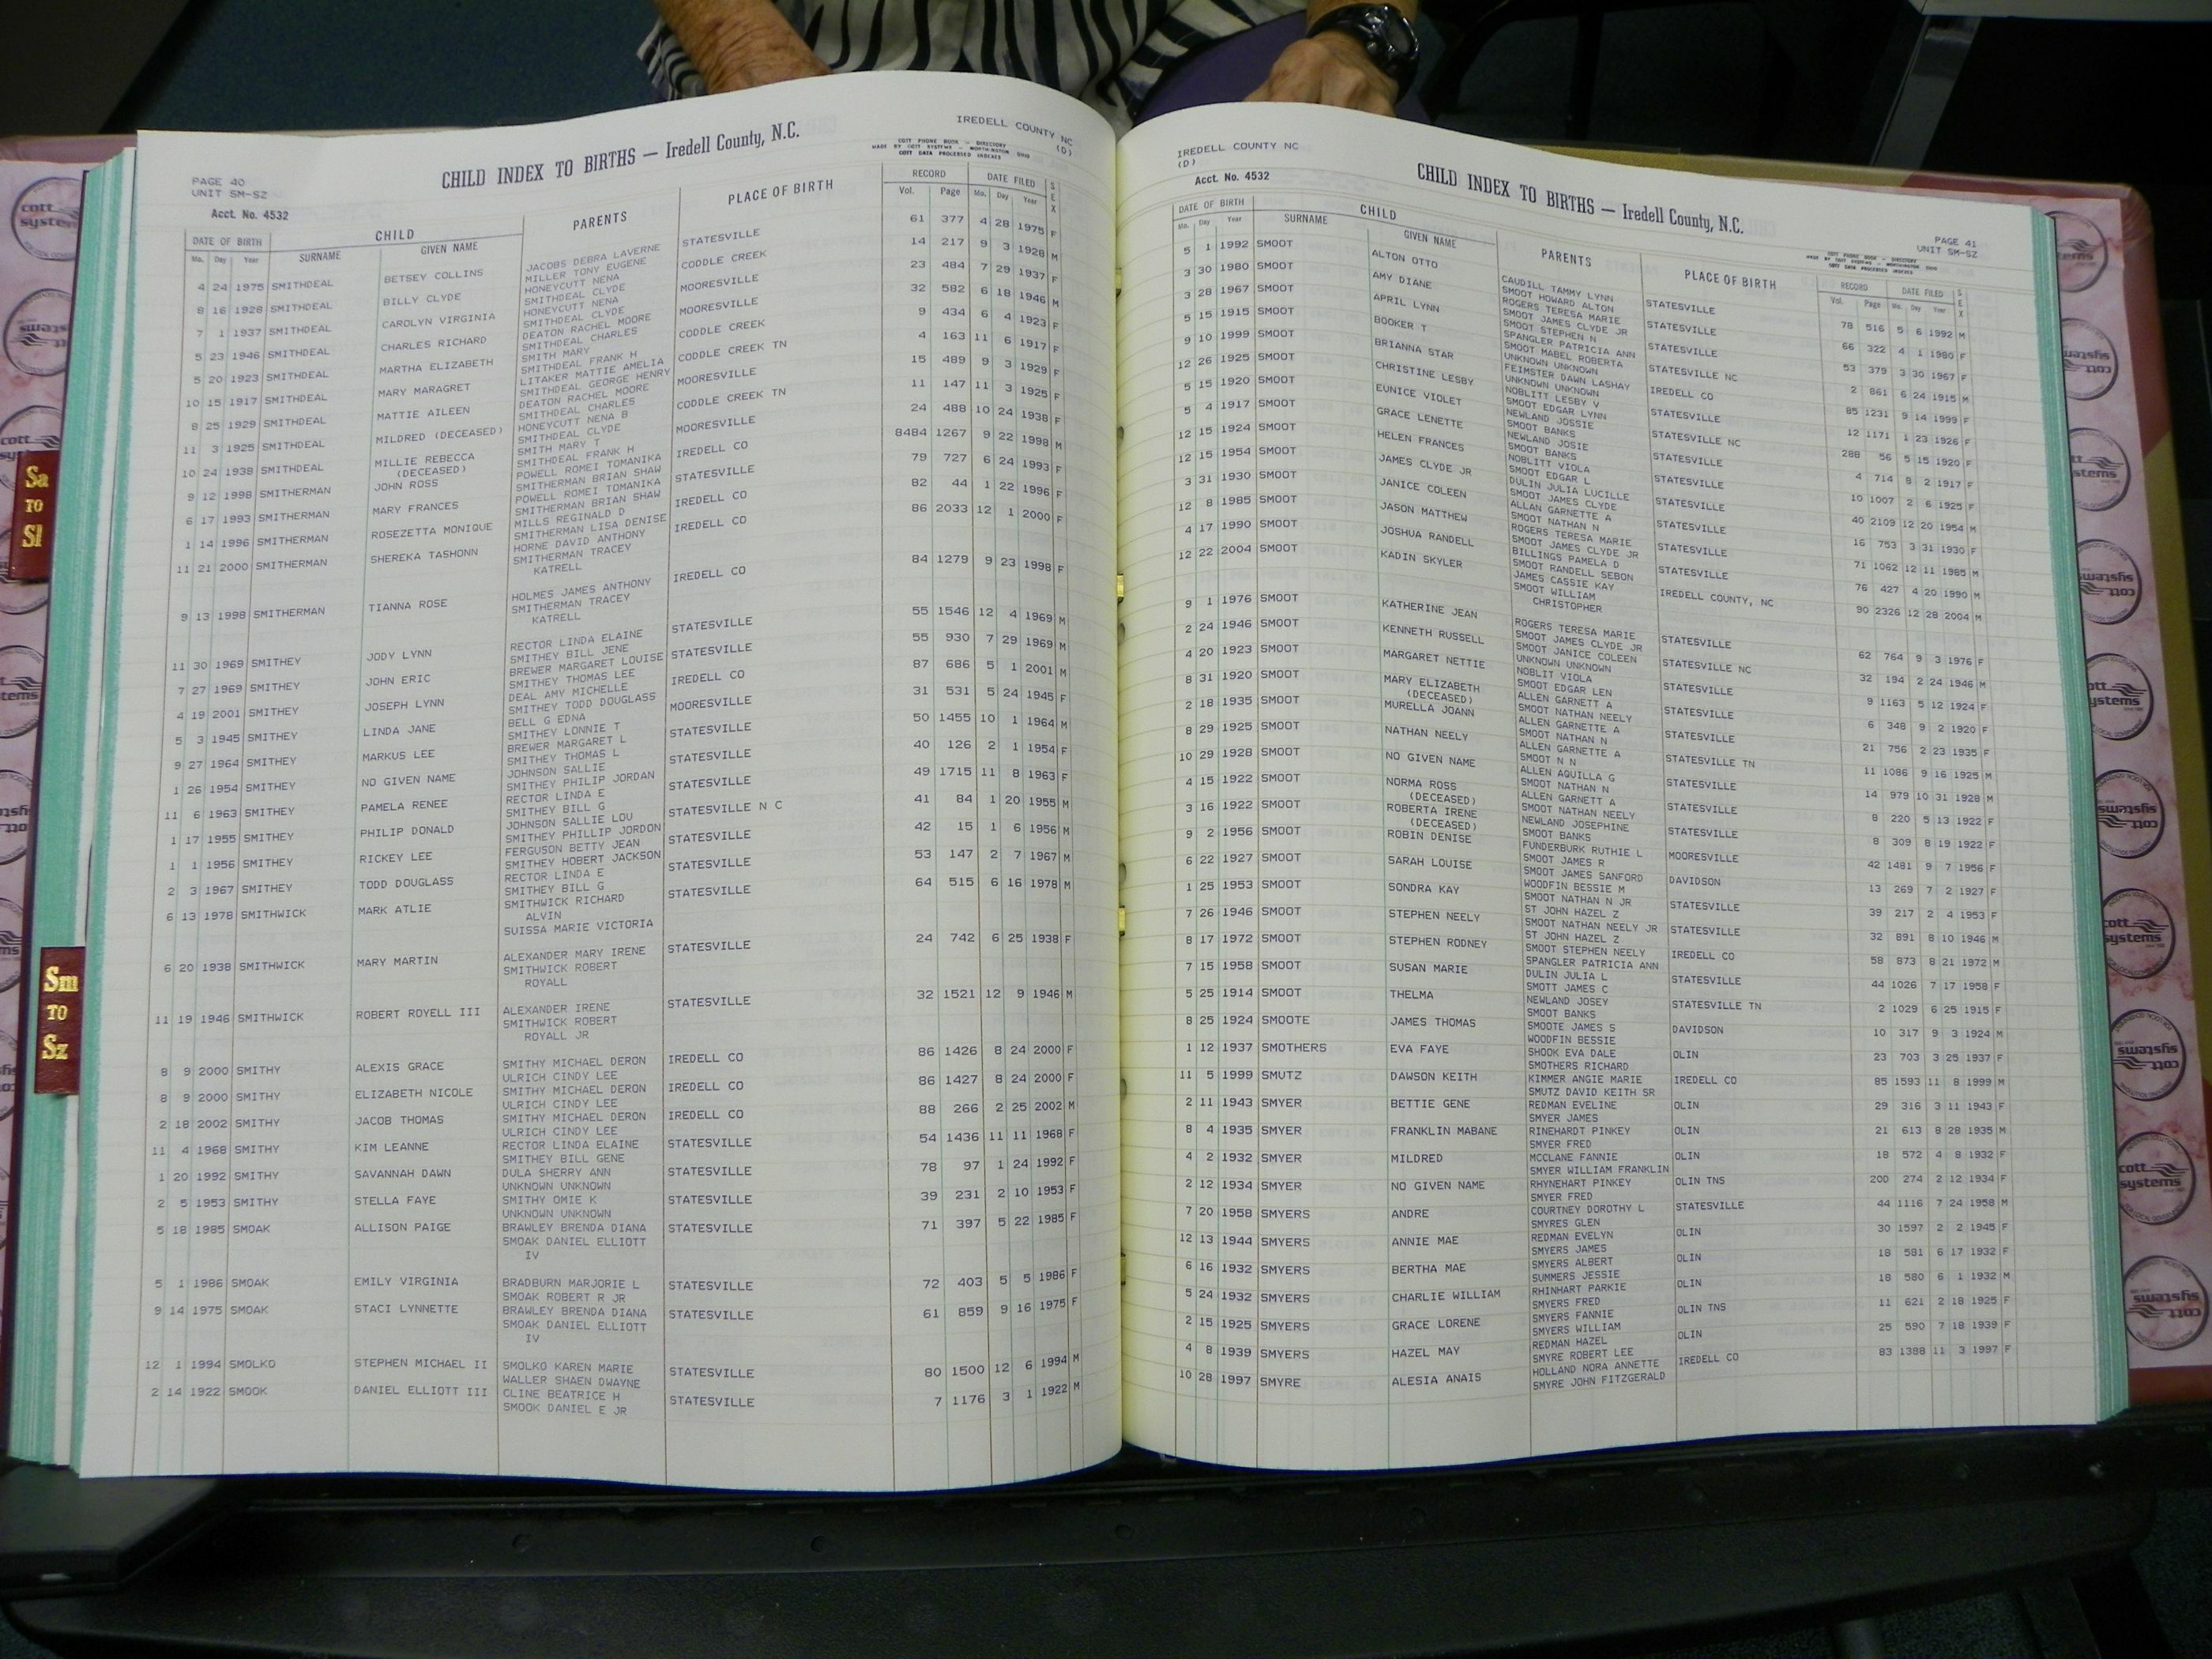 IREDELL COUNTY NC
(D)
CHILD INDEX TO BIRTHS — Iredell County, N.C.
COTT PHONE BOOK - DIRECTORY
MADE BY COTT SYSTEMS - WORTHINGTON OHIO
COTT DATA PROCESSED INDEXES
PAGE 40
UNIT SM-SZ
Acct. No. 4532
DATE OF BIRTH CHILD PARENTS PLACE OF BIRTH RECORD DATE FILED SEX
Mo. Day Year SURNAME GIVEN NAME Vol. Page Mo. Day Year
4 24 1975 SMITHDEAL BETSEY COLLINS JACOBS DEBRA LAVERNE STATESVILLE 61 377 4 28 1975 F
MILLER TONY EUGENE
8 16 1928 SMITHDEAL BILLY CLYDE HONEYCUTT NENA CODDLE CREEK 14 217 9 3 1928 M
SMITHDEAL CLYDE
7 1 1937 SMITHDEAL CAROLYN VIRGINIA HONEYCUTT NENA MOORESVILLE 23 484 7 29 1937 F
SMITHDEAL CLYDE
5 23 1946 SMITHDEAL CHARLES RICHARD DEATON RACHEL MOORE MOORESVILLE 32 582 6 18 1946 M
SMITHDEAL CHARLES
5 20 1923 SMITHDEAL MARTHA ELIZABETH SMITH MARY CODDLE CREEK 9 434 6 4 1923 F
SMITHDEAL FRANK H
10 15 1917 SMITHDEAL MARY MARAGRET LITAKER MATTIE AMELIA CODDLE CREEK TN 4 163 11 6 1917 F
SMITHDEAL GEORGE HENRY
8 25 1929 SMITHDEAL MATTIE AILEEN DEATON RACHEL MOORE MOORESVILLE 15 489 9 3 1929 F
SMITHDEAL CHARLES
11 3 1925 SMITHDEAL MILDRED (DECEASED) HONEYCUTT NENA B CODDLE CREEK TN 11 147 11 3 1925 F
SMITHDEAL CLYDE
10 24 1938 SMITHDEAL MILLIE REBECCA SMITH MARY T MOORESVILLE 24 488 10 24 1938 F
(DECEASED) SMITHDEAL FRANK H
9 12 1998 SMITHERMAN JOHN ROSS POWELL ROMEI TOMANIKA IREDELL CO 8484 1267 9 22 1998 M
SMITHERMAN BRIAN SHAW
6 17 1993 SMITHERMAN MARY FRANCES POWELL ROMEI TOMANIKA STATESVILLE 79 727 6 24 1993 F
SMITHERMAN BRIAN SHAW
1 14 1996 SMITHERMAN ROSEZETTA MONIQUE MILLS REGINALD D IREDELL CO 82 44 1 22 1996 F
SMITHERMAN LISA DENISE
11 21 2000 SMITHERMAN SHEREKA TASHONN HORNE DAVID ANTHONY IREDELL CO 86 2033 12 1 2000 F
SMITHERMAN TRACEY
KATRELL
9 13 1998 SMITHERMAN TIANNA ROSE HOLMES JAMES ANTHONY IREDELL CO 84 1279 9 23 1998 F
SMITHERMAN TRACEY
KATRELL
11 30 1969 SMITHEY JODY LYNN RECTOR LINDA ELAINE STATESVILLE 55 1546 12 4 1969 M
SMITHEY BILL JENE
7 27 1969 SMITHEY JOHN ERIC BREWER MARGARET LOUISE STATESVILLE 55 930 7 29 1969 M
SMITHEY THOMAS LEE
4 19 2001 SMITHEY JOSEPH LYNN DEAL AMY MICHELLE IREDELL CO 87 686 5 1 2001 M
SMITHEY TODD DOUGLASS
5 3 1945 SMITHEY LINDA JANE BELL G EDNA MOORESVILLE 31 531 5 24 1945 F
SMITHEY LONNIE T
9 27 1964 SMITHEY MARKUS LEE BREWER MARGARET L STATESVILLE 50 1455 10 1 1964 M
SMITHEY THOMAS L
1 26 1954 SMITHEY NO GIVEN NAME JOHNSON SALLIE STATESVILLE 40 126 2 1 1954 F
SMITHEY PHILIP JORDAN
11 6 1963 SMITHEY PAMELA RENEE RECTOR LINDA E STATESVILLE 49 1715 11 8 1963 F
SMITHEY BILL G
1 17 1955 SMITHEY PHILIP DONALD JOHNSON SALLIE LOU STATESVILLE N C 41 84 1 20 1955 M
SMITHEY PHILLIP JORDON
1 1 1956 SMITHEY RICKEY LEE FERGUSON BETTY JEAN STATESVILLE 42 15 1 6 1956 M
SMITHEY HOBERT JACKSON
2 3 1967 SMITHEY TODD DOUGLASS RECTOR LINDA E STATESVILLE 53 147 2 7 1967 M
SMITHEY BILL G
6 13 1978 SMITHWICK MARK ATLIE SMITHWICK RICHARD STATESVILLE 64 515 6 16 1978 M
ALVIN
SUISSA MARIE VICTORIA
6 20 1938 SMITHWICK MARY MARTIN ALEXANDER MARY IRENE STATESVILLE 24 742 6 25 1938 F
SMITHWICK ROBERT
ROYALL
11 19 1946 SMITHWICK ROBERT ROYELL III ALEXANDER IRENE STATESVILLE 32 1521 12 9 1946 M
SMITHWICK ROBERT
ROYALL JR
8 9 2000 SMITHY ALEXIS GRACE SMITHY MICHAEL DERON IREDELL CO 86 1426 8 24 2000 F
ULRICH CINDY LEE
8 9 2000 SMITHY ELIZABETH NICOLE SMITHY MICHAEL DERON IREDELL CO 86 1427 8 24 2000 F
ULRICH CINDY LEE
2 18 2002 SMITHY JACOB THOMAS SMITHY MICHAEL DERON IREDELL CO 88 266 2 25 2002 M
ULRICH CINDY LEE
11 4 1968 SMITHY KIM LEANNE RECTOR LINDA ELAINE STATESVILLE 54 1436 11 11 1968 F
SMITHEY BILL GENE
1 20 1992 SMITHY SAVANNAH DAWN DULA SHERRY ANN STATESVILLE 78 97 1 24 1992 F
UNKNOWN UNKNOWN
2 5 1953 SMITHY STELLA FAYE SMITHY OMIE K STATESVILLE 39 231 2 10 1953 F
UNKNOWN UNKNOWN
5 18 1985 SMOAK ALLISON PAIGE BRAWLEY BRENDA DIANA STATESVILLE 71 397 5 22 1985 F
SMOAK DANIEL ELLIOTT
IV
5 1 1986 SMOAK EMILY VIRGINIA BRADBURN MARJORIE L STATESVILLE 72 403 5 5 1986 F
SMOAK ROBERT R JR
9 14 1975 SMOAK STACI LYNNETTE BRAWLEY BRENDA DIANA STATESVILLE 61 859 9 16 1975 F
SMOAK DANIEL ELLIOTT
IV
12 1 1994 SMOLKO STEPHEN MICHAEL II SMOLKO KAREN MARIE STATESVILLE 80 1500 12 6 1994 M
WALLER SHAEN DWAYNE
2 14 1922 SMOOK DANIEL ELLIOTT III CLINE BEATRICE H STATESVILLE 7 1176 3 1 1922 M
SMOOK DANIEL E JR
IREDELL COUNTY NC
(D)
Acct. No. 4532
CHILD INDEX TO BIRTHS — Iredell County, N.C.
PAGE 41
UNIT SM-SZ
COTT PHONE BOOK - DIRECTORY
MADE BY COTT SYSTEMS - WORTHINGTON OHIO
COTT DATA PROCESSED INDEXES
DATE OF BIRTH CHILD PARENTS PLACE OF BIRTH RECORD DATE FILED SEX
Mo. Day Year SURNAME GIVEN NAME Vol. Page Mo. Day Year
5 1 1992 SMOOT ALTON OTTO CAUDILL TAMMY LYNN STATESVILLE 78 516 5 6 1992 M
SMOOT HOWARD ALTON
3 30 1980 SMOOT AMY DIANE ROGERS TERESA MARIE STATESVILLE 66 322 4 1 1980 F
SMOOT JAMES CLYDE JR
3 28 1967 SMOOT APRIL LYNN SMOOT STEPHEN N STATESVILLE 53 379 3 30 1967 F
SPANGLER PATRICIA ANN
5 15 1915 SMOOT BOOKER T SMOOT MABEL ROBERTA STATESVILLE NC 2 861 6 24 1915 M
UNKNOWN UNKNOWN
9 10 1999 SMOOT BRIANNA STAR FEIMSTER DAWN LASHAY IREDELL CO 85 1231 9 14 1999 F
UNKNOWN UNKNOWN
12 26 1925 SMOOT CHRISTINE LESBY NOBLITT LESBY V STATESVILLE 12 1171 1 23 1926 F
SMOOT EDGAR LYNN
5 15 1920 SMOOT EUNICE VIOLET NEWLAND JOSSIE STATESVILLE NC 288 56 5 15 1920 F
SMOOT BANKS
5 4 1917 SMOOT GRACE LENETTE NEWLAND JOSIE STATESVILLE 4 714 8 2 1917 F
SMOOT BANKS
12 15 1924 SMOOT HELEN FRANCES NOBLITT VIOLA STATESVILLE 10 1007 2 6 1925 F
SMOOT EDGAR L
12 15 1954 SMOOT JAMES CLYDE JR DULIN JULIA LUCILLE STATESVILLE 40 2109 12 20 1954 M
SMOOT JAMES CLYDE
3 31 1930 SMOOT JANICE COLEEN ALLAN GARNETTE A STATESVILLE 16 753 3 31 1930 F
SMOOT NATHAN N
12 8 1985 SMOOT JASON MATTHEW ROGERS TERESA MARIE STATESVILLE 71 1062 12 11 1985 M
SMOOT JAMES CLYDE JR
4 17 1990 SMOOT JOSHUA RANDELL BILLINGS PAMELA D STATESVILLE 76 427 4 20 1990 M
SMOOT RANDELL SEBON
12 22 2004 SMOOT KADIN SKYLER JAMES CASSIE KAY IREDELL COUNTY, NC 90 2326 12 28 2004 M
SMOOT WILLIAM
CHRISTOPHER
9 1 1976 SMOOT KATHERINE JEAN ROGERS TERESA MARIE STATESVILLE 62 764 9 3 1976 F
SMOOT JAMES CLYDE JR
2 24 1946 SMOOT KENNETH RUSSELL SMOOT JANICE COLEEN STATESVILLE NC 32 194 2 24 1946 M
UNKNOWN UNKNOWN
4 20 1923 SMOOT MARGARET NETTIE NOBLIT VIOLA STATESVILLE 9 1163 5 12 1924 F
SMOOT EDGAR LEN
8 31 1920 SMOOT MARY ELIZABETH ALLEN GARNETT A STATESVILLE 6 348 9 2 1920 F
(DECEASED) SMOOT NATHAN NEELY
2 18 1935 SMOOT MURELLA JOANN ALLEN GARNETTE A STATESVILLE 21 756 2 23 1935 F
SMOOT NATHAN N
8 29 1925 SMOOT NATHAN NEELY ALLEN GARNETTE A STATESVILLE TN 11 1086 9 16 1925 M
SMOOT N N
10 29 1928 SMOOT NO GIVEN NAME ALLEN AQUILLA G STATESVILLE 14 979 10 31 1928 M
SMOOT NATHAN N
4 15 1922 SMOOT NORMA ROSS ALLEN GARNETT A STATESVILLE 8 220 5 13 1922 F
(DECEASED) SMOOT NATHAN NEELY
3 16 1922 SMOOT ROBERTA IRENE NEWLAND JOSEPHINE STATESVILLE 8 309 8 19 1922 F
(DECEASED) SMOOT BANKS
9 2 1956 SMOOT ROBIN DENISE FUNDERBURK RUTHIE L MOORESVILLE 42 1481 9 7 1956 F
SMOOT JAMES R
6 22 1927 SMOOT SARAH LOUISE SMOOT JAMES SANFORD DAVIDSON 13 269 7 2 1927 F
WOODFIN BESSIE M
1 25 1953 SMOOT SONDRA KAY SMOOT NATHAN N JR STATESVILLE 39 217 2 4 1953 F
ST JOHN HAZEL Z
7 26 1946 SMOOT STEPHEN NEELY SMOOT NATHAN NEELY JR STATESVILLE 32 891 8 10 1946 M
ST JOHN HAZEL Z
8 17 1972 SMOOT STEPHEN RODNEY SMOOT STEPHEN NEELY IREDELL CO 58 873 8 21 1972 M
SPANGLER PATRICIA ANN
7 15 1958 SMOOT SUSAN MARIE DULIN JULIA L STATESVILLE 44 1026 7 17 1958 F
SMOTT JAMES C
5 25 1914 SMOOT THELMA NEWLAND JOSEY STATESVILLE TN 2 1029 6 25 1915 F
SMOOT BANKS
8 25 1924 SMOOTE JAMES THOMAS SMOOTE JAMES S DAVIDSON 10 317 9 3 1924 M
WOODFIN BESSIE
1 12 1937 SMOTHERS EVA FAYE SHOOK EVA DALE OLIN 23 703 3 25 1937 F
SMOTHERS RICHARD
11 5 1999 SMUTZ DAWSON KEITH KIMMER ANGIE MARIE IREDELL CO 85 1593 11 8 1999 M
SMUTZ DAVID KEITH SR
2 11 1943 SMYER BETTIE GENE REDMAN EVELINE OLIN 29 316 3 11 1943 F
SMYER JAMES
8 4 1935 SMYER FRANKLIN MABANE RINEHARDT PINKEY OLIN 21 613 8 28 1935 M
SMYER FRED
4 2 1932 SMYER MILDRED MCCLANE FANNIE OLIN 18 572 4 8 1932 F
SMYER WILLIAM FRANKLIN
2 12 1934 SMYER NO GIVEN NAME RHYNEHART PINKEY OLIN TNS 200 274 2 12 1934 F
SMYER FRED
7 20 1958 SMYERS ANDRE COURTNEY DOROTHY L STATESVILLE 44 1116 7 24 1958 M
SMYRES GLEN
12 13 1944 SMYERS ANNIE MAE REDMAN EVELYN OLIN 30 1597 2 2 1945 F
SMYERS JAMES
6 16 1932 SMYERS BERTHA MAE SMYERS ALBERT OLIN 18 581 6 17 1932 F
SUMMERS JESSIE
5 24 1932 SMYERS CHARLIE WILLIAM RHINHART PARKIE OLIN 18 580 6 1 1932 M
SMYERS FRED
2 15 1925 SMYERS GRACE LORENE SMYERS FANNIE OLIN TNS 11 621 2 18 1925 F
SMYERS WILLIAM
4 8 1939 SMYERS HAZEL MAY REDMAN HAZEL OLIN 25 590 7 18 1939 F
SMYRE ROBERT LEE
10 28 1997 SMYRE ALESIA ANAIS HOLLAND NORA ANNETTE IREDELL CO 83 1388 11 3 1997 F
SMYRE JOHN FITZGERALD
Sa
TO
Sl
Sm
TO
Sz
cott
systems